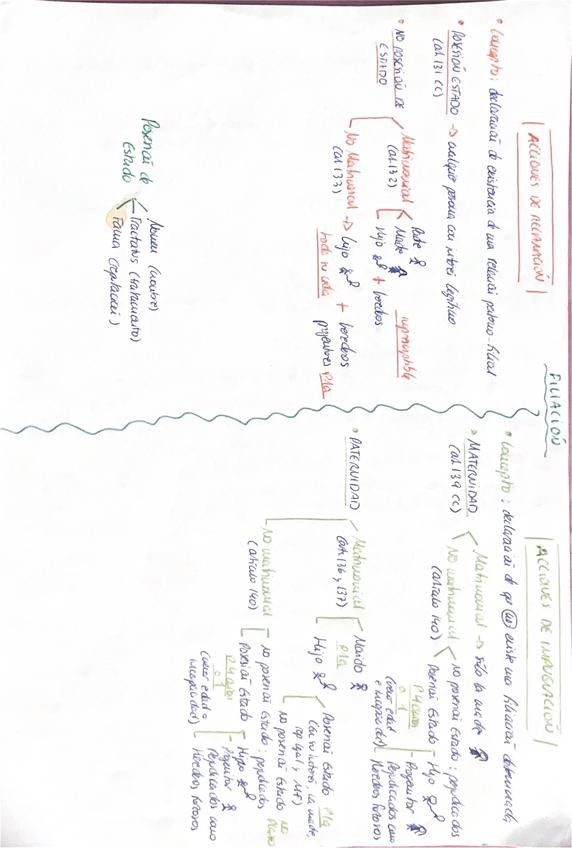 FILIACIÓN
ACCIONES DE RECLAMACIÓN
• Concepto: declaración de existencia de una relación paterno-filial
• POSESIÓN ESTADO → cualquier persona con interés legítimo
(art. 131 CC)
• NO POSESIÓN DE
ESTADO
Matrimonial
(art. 132)
Padre
Madre
Hijo + herederos
imprescriptible
No Matrimonial → Hijo + herederos
(art. 133)
toda su vida
progenitores P1a
Posesión de
Estado
Nomen (nombre)
Tractatus (tratamiento)
Fama (reputación)
ACCIONES DE IMPUGNACIÓN
• Concepto: declaración de que no existe una filiación determinada
• MATERNIDAD
(art. 139 CC)
Matrimonial → sólo la madre
No matrimonial
(artículo 140)
no posesión Estado: perjudicados
Posesión Estado
P. 4 años
Hijo
Progenitor
Perjudicados como
Herederos forzosos
• PATERNIDAD
Matrimonial
(art. 136, 137)
Marido
P1a
Hijo
Posesión Estado P1a
No posesión Estado no
plazo
No matrimonial
(artículo 140)
no posesión Estado: perjudicados
Posesión Estado
P. 4 años
Hijo
Progenitor
Perjudicados como
Herederos forzosos